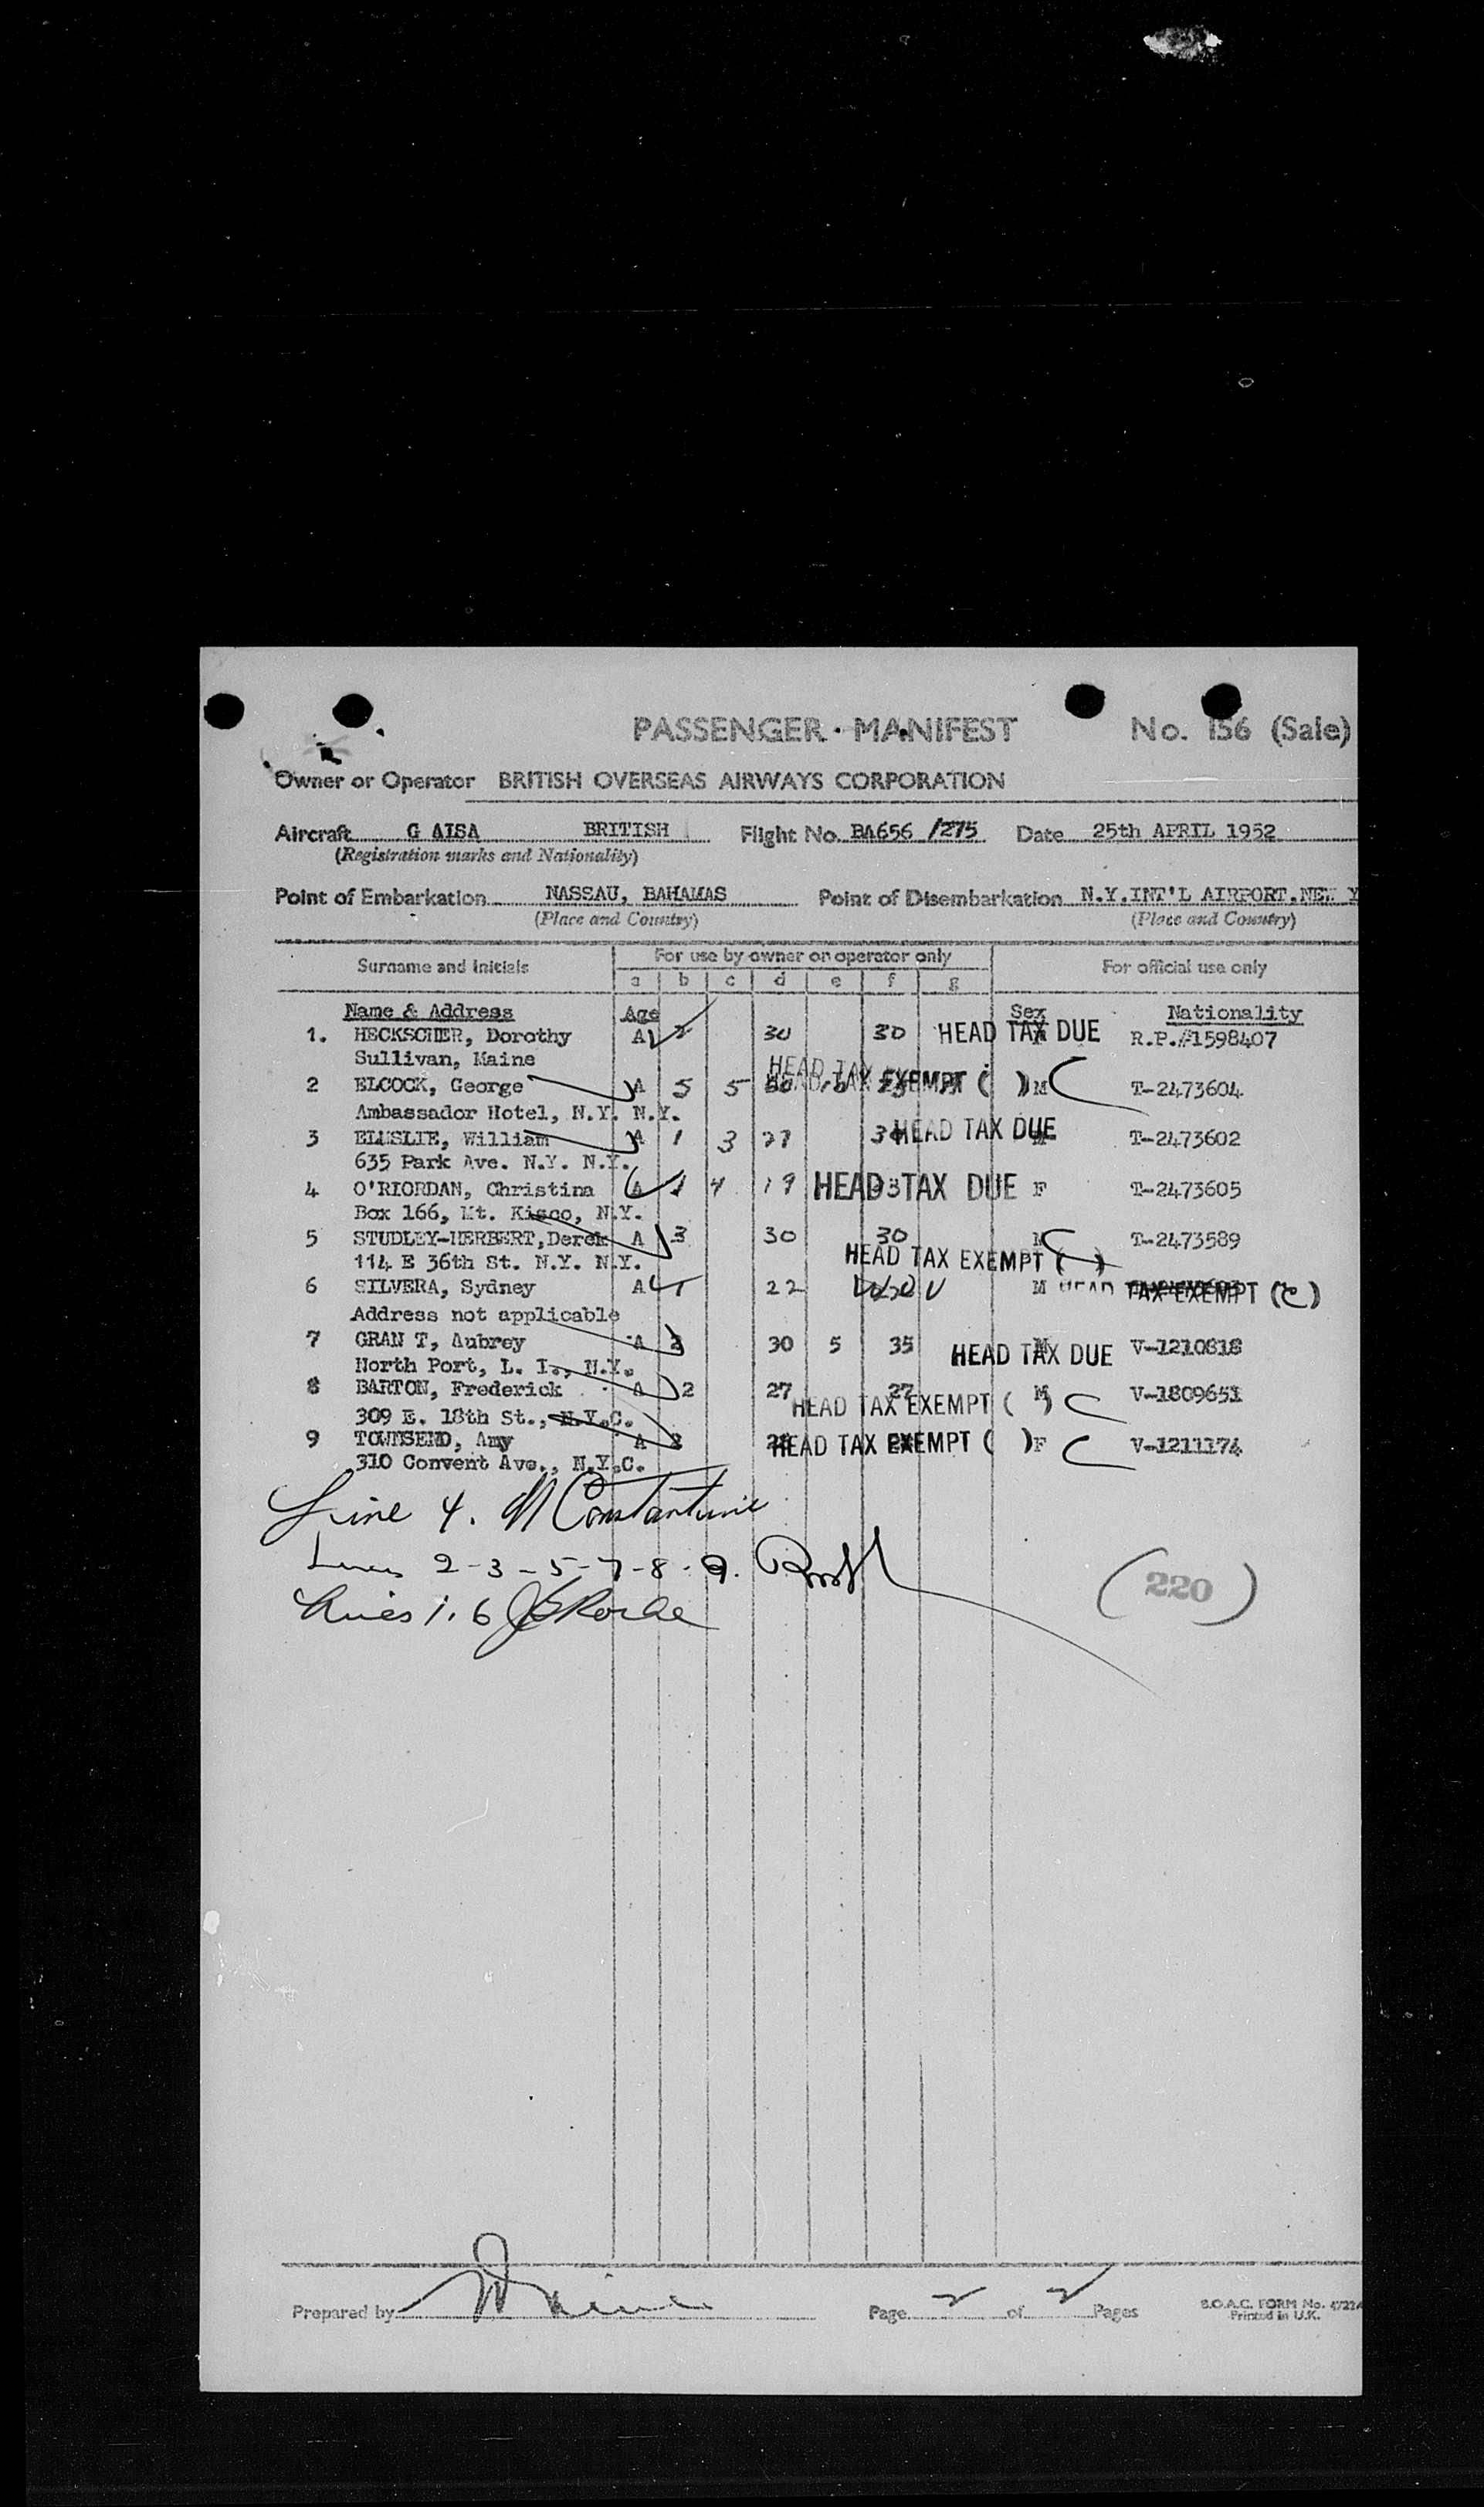 PASSENGER MANIFEST No. 156 (Sale)
Owner or Operator BRITISH OVERSEAS AIRWAYS CORPORATION
Aircraft G AISA BRITISH Flight No. BA656 /275 Date 25th APRIL 1952
(Registration marks and Nationality)
Point of Embarkation NASSAU, BAHAMAS Point of Disembarkation N.Y.INT'L AIRPORT.NEW Y
(Place and Country) (Place and Country)
Surname and initials For use by owner or operator only For official use only
a b c d e f g
Name & Address Age Sex Nationality
1. HECKSCHER, Dorothy A 2 30 30 HEAD TAX DUE R.P.#1598407
Sullivan, Maine
2 ELCOCK, George A 5 5 HEAD TAX EXEMPT ( ) M T-2473604
Ambassador Hotel, N.Y. N.Y.
3 ELMSLIE, William A 1 3 27 HEAD TAX DUE T-2473602
635 Park Ave. N.Y. N.Y.
4 O'RIORDAN, Christina A 1 4 19 HEAD TAX DUE F T-2473605
Box 166, Mt. Kisco, N.Y.
5 STUDLEY-HERBERT,Derek A 3 30 30 M T-2473589
114 E 36th St. N.Y. N.Y. HEAD TAX EXEMPT ( )
6 SILVERA, Sydney A 1 22 M HEAD TAX EXEMPT (C)
Address not applicable
7 GRAN T, Aubrey A 2 30 5 35 HEAD TAX DUE M V-1210818
North Port, L. I., N.Y.
8 BARTON, Frederick A 2 27 27 HEAD TAX EXEMPT ( ) M V-1809651
309 E. 18th St., N.Y.C.
9 TOWNSEND, Amy A 2 HEAD TAX EXEMPT ( ) F V-1211174
310 Convent Ave., N.Y.C.
Line 4. M Constantine
Lines 2-3-5-7-8-9.
Lines 1. 6
(220)
Prepared by Page 2 of 2 Pages B.O.A.C. FORM No.
Printed in U.K.